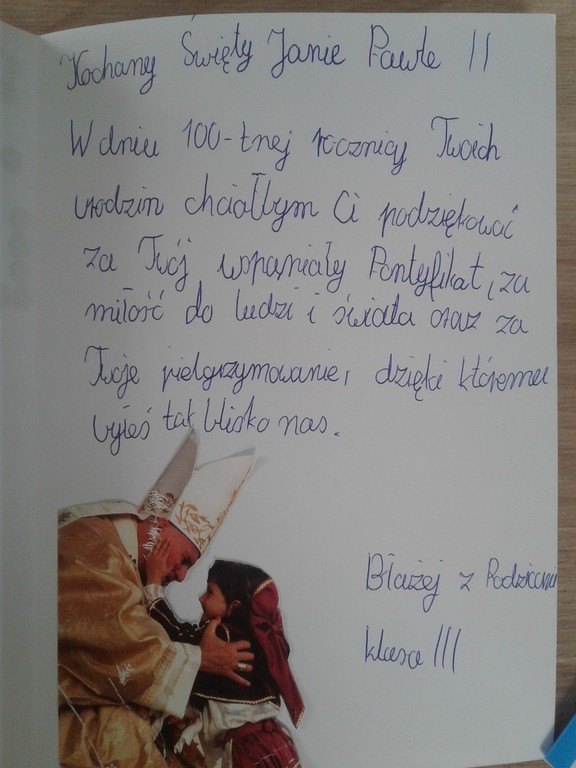 Kochany Święty Janie Pawle II
W dniu 100-tnej rocznicy Twoich
urodzin chciałbym Ci podziękować
za Twój wspaniały Pontyfikat, za
miłość do ludzi i świata oraz za
Twoje pielgrzymowanie, dzięki któremu
byłeś tak blisko nas.
Błażej z Rodzicami
klasa III